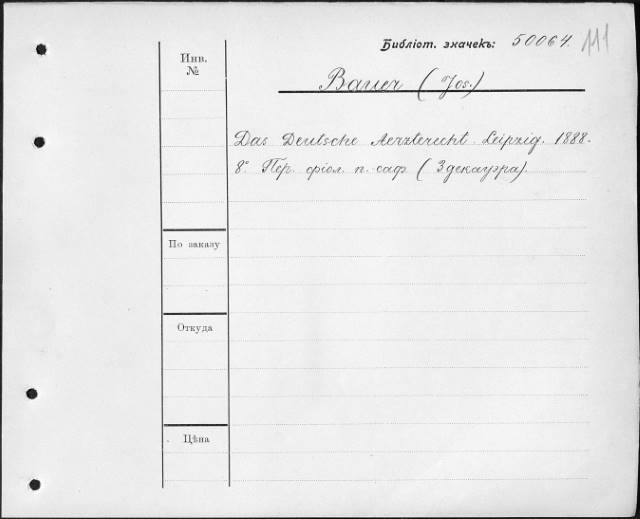 Библіот. значекъ: 50064. 111
Инв. №
Bauer (Jos.)
Das Deutsche Aerzterecht. Leipzig. 1888.
8°. Пер. фіол. п. саф. (3 декаурра).
По заказу
Откуда
Цѣна